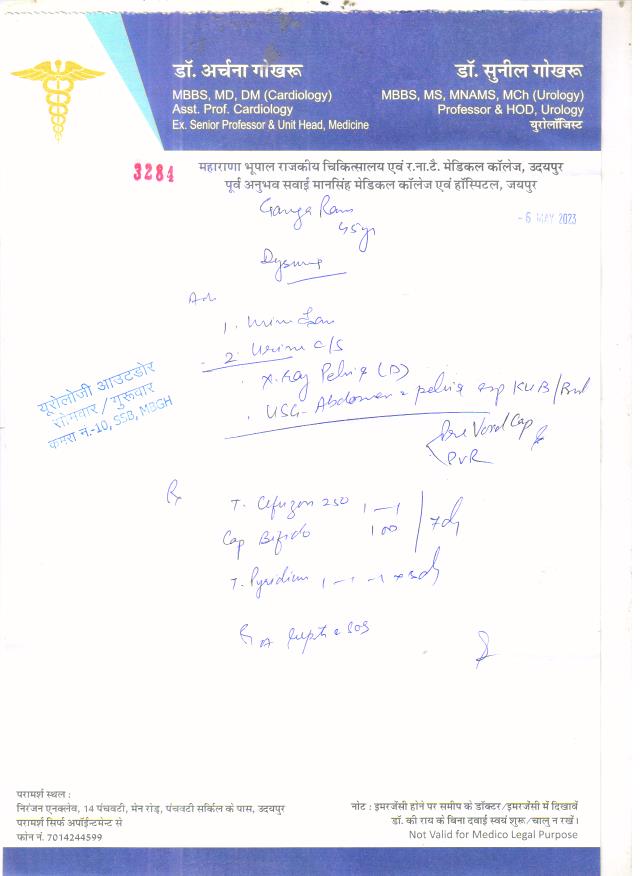 डॉ. अर्चना गोखरू
MBBS, MD, DM (Cardiology)
Asst. Prof. Cardiology
Ex. Senior Professor & Unit Head, Medicine
डॉ. सुनील गोखरू
MBBS, MS, MNAMS, MCh (Urology)
Professor & HOD, Urology
यूरोलॉजिस्ट
3284
महाराणा भूपाल राजकीय चिकित्सालय एवं र.ना.टै. मेडिकल कॉलेज, उदयपुर
पूर्व अनुभव सवाई मानसिंह मेडिकल कॉलेज एवं हॉस्पिटल, जयपुर
Ganga Ram
45yr
- 6 MAY 2023
Adv
1. Urine
2. Urine C/S
. X-Ray Pelvis (D)
. USG - Abdomen pelvis KUB /
Void Cap
PVR
यूरोलोजी आउटडोर
सोमवार / गुरूवार
कमरा नं.-10, SSB, MBGH
Rx
T. 250 1-1
Cap Bifido 100 / 7d
T. Pyridium 1-1-1 x
SOS
परामर्श स्थल :
निरंजन एनक्लेव, 14 पंचवटी, मेन रोड़, पंचवटी सर्किल के पास, उदयपुर
परामर्श सिर्फ अपॉईन्टमेन्ट से
फोन नं. 7014244599
नोट : इमरजेंसी होने पर समीप के डॉक्टर/इमरजेंसी में दिखावें
डॉ. की राय के बिना दवाई स्वयं शुरू/चालु न रखें।
Not Valid for Medico Legal Purpose